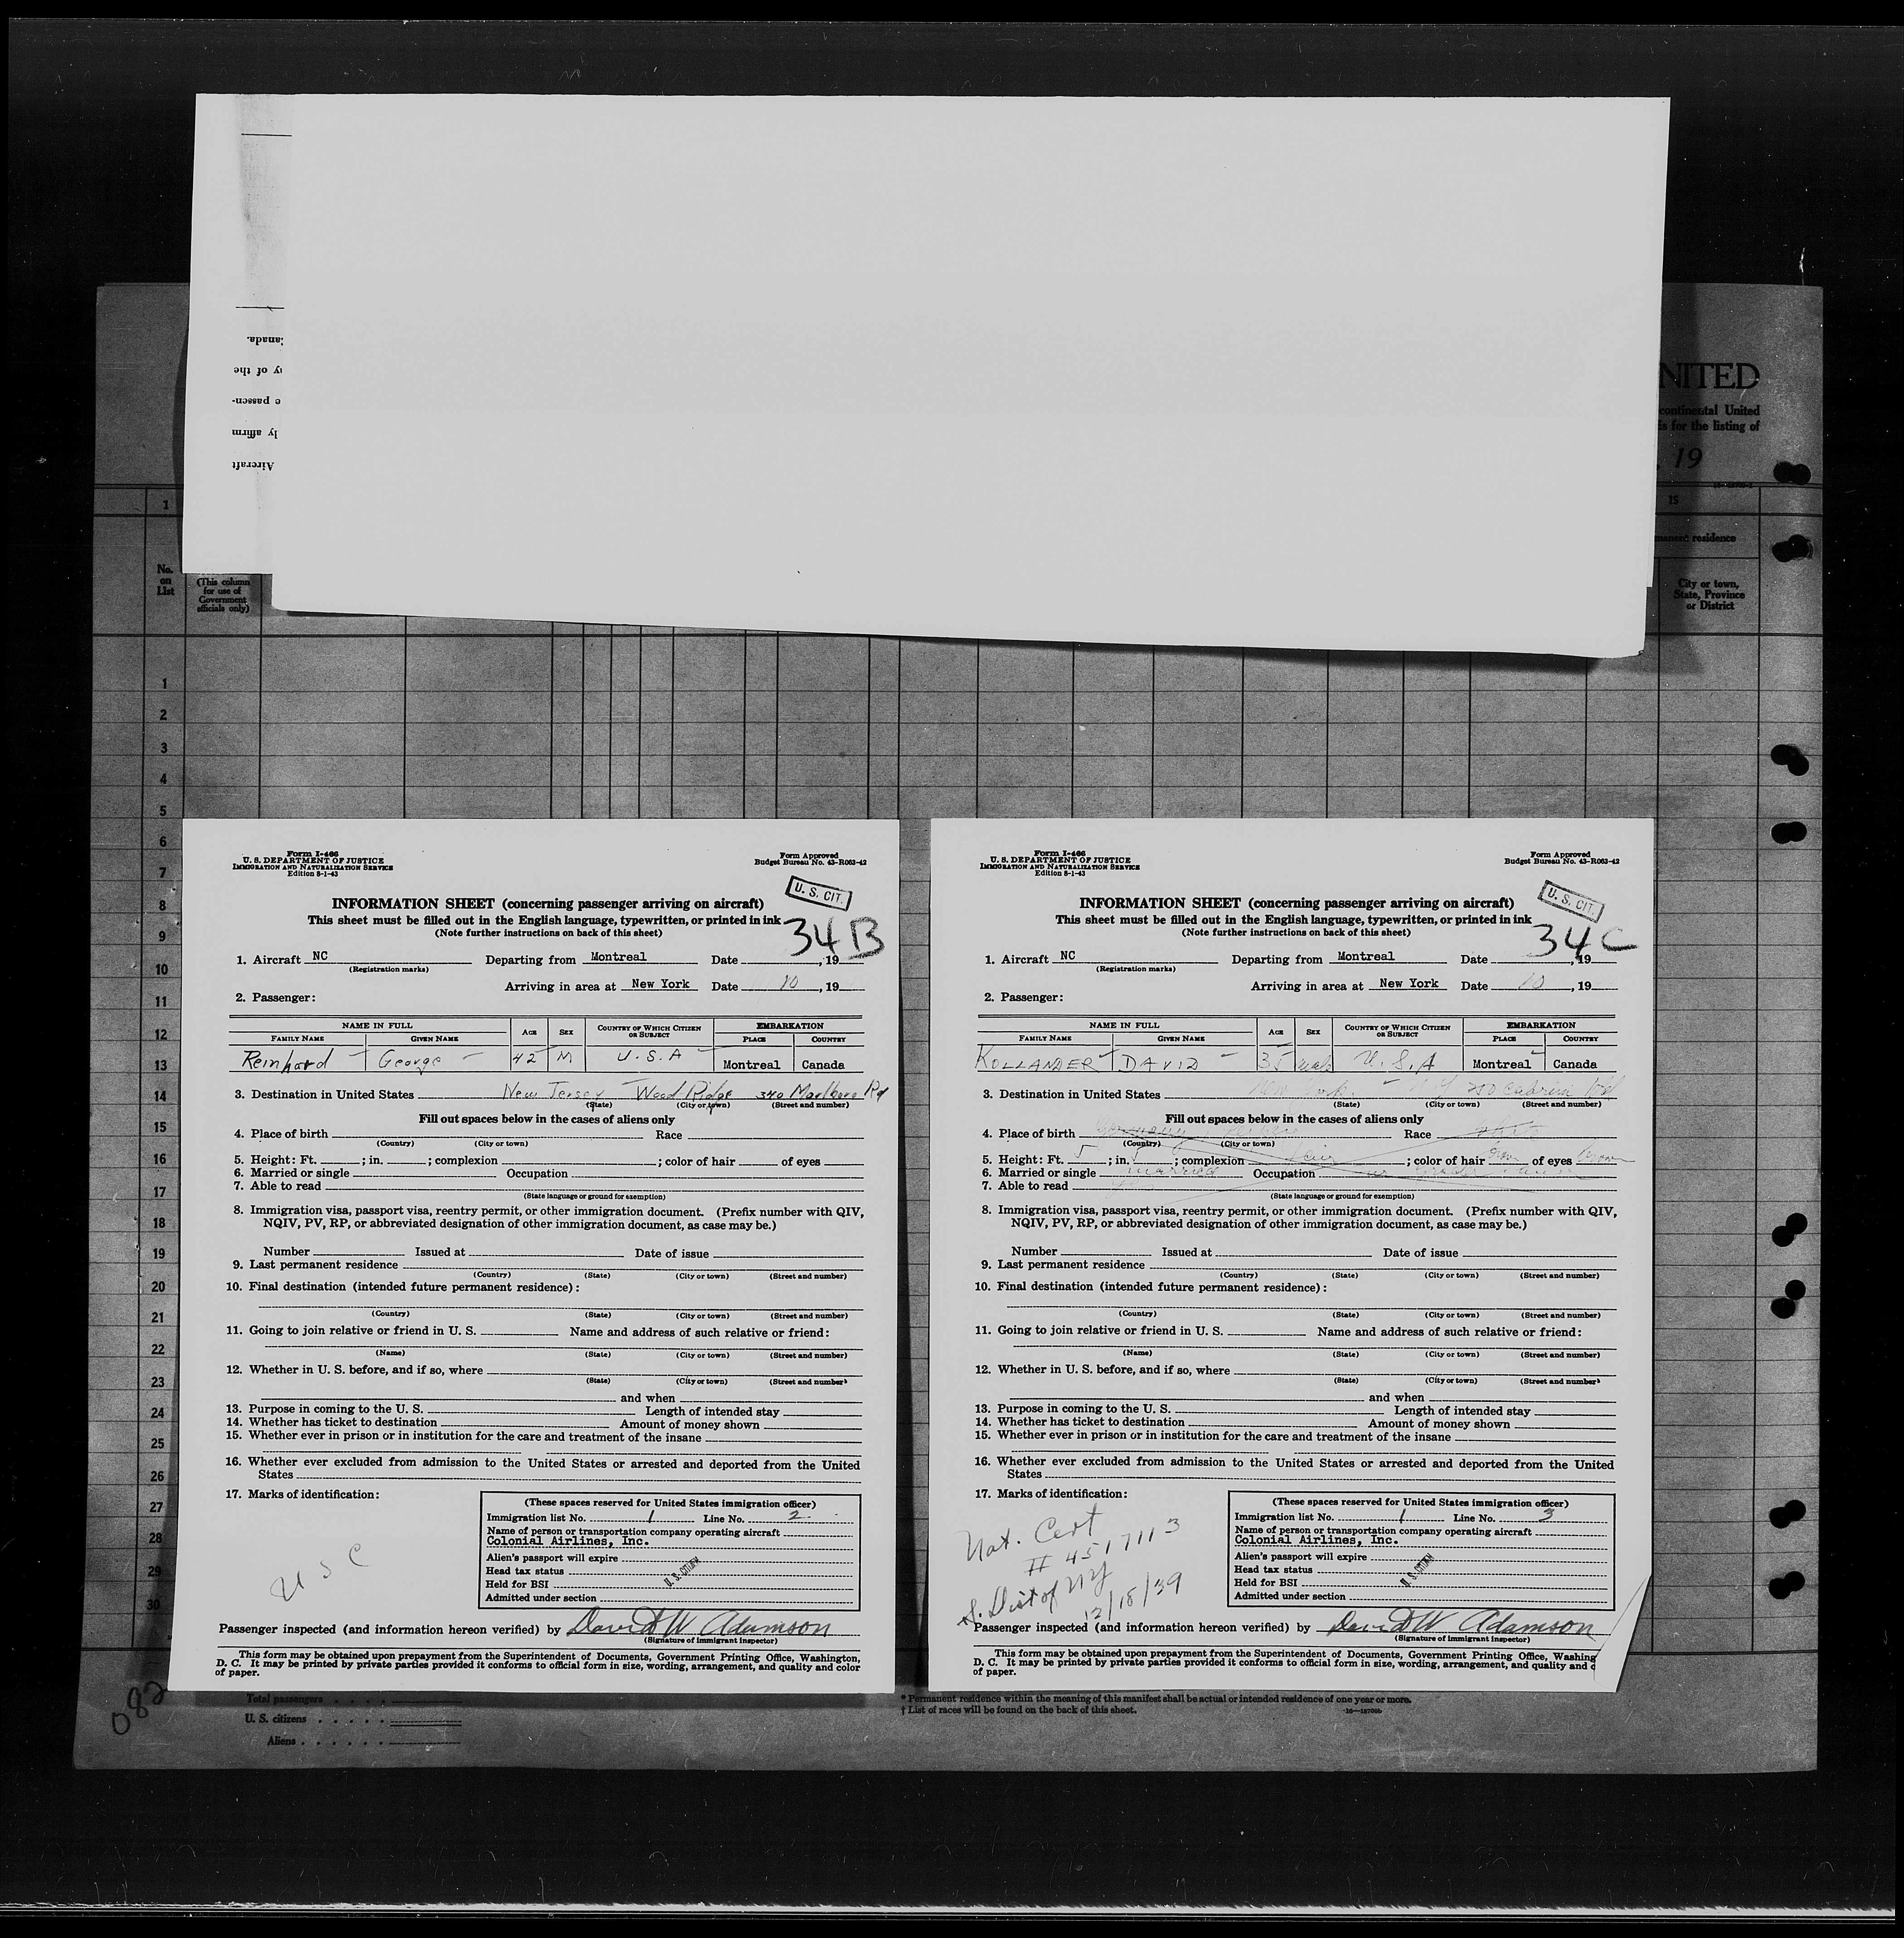 anada.
y of the
e passen-
ly affirm
Aircraft
NITED
continental United
is for the listing of
, 19
1
15
manent residence
No.
on
List
(This column
for use of
Government
officials only)
City or town,
State, Province
or District
1
2
3
4
5
6
7
8
9
10
11
12
13
14
15
16
17
18
19
20
21
22
23
24
25
26
27
28
29
30
Form I-466
U. S. DEPARTMENT OF JUSTICE
IMMIGRATION AND NATURALIZATION SERVICE
Edition 8-1-43
Form Approved
Budget Bureau No. 43-R063-42
U. S. CIT.
INFORMATION SHEET (concerning passenger arriving on aircraft)
This sheet must be filled out in the English language, typewritten, or printed in ink
(Note further instructions on back of this sheet)
34 B
1. Aircraft NC Departing from Montreal Date , 19
(Registration marks)
Arriving in area at New York Date 10 , 19
2. Passenger:
NAME IN FULL AGE SEX COUNTRY OF WHICH CITIZEN OR SUBJECT EMBARKATION
FAMILY NAME GIVEN NAME PLACE COUNTRY
Reinhard George 42 M U.S.A Montreal Canada
3. Destination in United States New Jersey Wood Ridge 340 Marlboro Rd
(State) (City or town) (Street and number)
Fill out spaces below in the cases of aliens only
4. Place of birth Race
(Country) (City or town)
5. Height: Ft. ; in. ; complexion ; color of hair of eyes
6. Married or single Occupation
7. Able to read
(State language or ground for exemption)
8. Immigration visa, passport visa, reentry permit, or other immigration document. (Prefix number with QIV,
NQIV, PV, RP, or abbreviated designation of other immigration document, as case may be.)
Number Issued at Date of issue
9. Last permanent residence
(Country) (State) (City or town) (Street and number)
10. Final destination (intended future permanent residence):
(Country) (State) (City or town) (Street and number)
11. Going to join relative or friend in U. S. Name and address of such relative or friend:
(Name) (State) (City or town) (Street and number)
12. Whether in U. S. before, and if so, where
(State) (City or town) (Street and number)
and when
13. Purpose in coming to the U. S. Length of intended stay
14. Whether has ticket to destination Amount of money shown
15. Whether ever in prison or in institution for the care and treatment of the insane
16. Whether ever excluded from admission to the United States or arrested and deported from the United
States
17. Marks of identification:
(These spaces reserved for United States immigration officer)
Immigration list No. 1 Line No. 2
Name of person or transportation company operating aircraft
Colonial Airlines, Inc.
Alien's passport will expire
Head tax status
Held for BSI
U. S. CITIZEN
Admitted under section
U S C
Passenger inspected (and information hereon verified) by David W Adamson
(Signature of immigrant inspector)
This form may be obtained upon prepayment from the Superintendent of Documents, Government Printing Office, Washington,
D. C. It may be printed by private parties provided it conforms to official form in size, wording, arrangement, and quality and color
of paper.
Form I-466
U. S. DEPARTMENT OF JUSTICE
IMMIGRATION AND NATURALIZATION SERVICE
Edition 8-1-43
Form Approved
Budget Bureau No. 43-R063-42
U. S. CIT.
INFORMATION SHEET (concerning passenger arriving on aircraft)
This sheet must be filled out in the English language, typewritten, or printed in ink
(Note further instructions on back of this sheet)
34 C
1. Aircraft NC Departing from Montreal Date , 19
(Registration marks)
Arriving in area at New York Date 10 , 19
2. Passenger:
NAME IN FULL AGE SEX COUNTRY OF WHICH CITIZEN OR SUBJECT EMBARKATION
FAMILY NAME GIVEN NAME PLACE COUNTRY
KOLLANDER DAVID 35 male U.S.A Montreal Canada
3. Destination in United States New York N.Y 250 Cabrini Bld
(State) (City or town) (Street and number)
Fill out spaces below in the cases of aliens only
4. Place of birth Germany Race white
(Country) (City or town)
5. Height: Ft. 5 ; in. ; complexion fair ; color of hair brown of eyes brown
6. Married or single married Occupation
7. Able to read
(State language or ground for exemption)
8. Immigration visa, passport visa, reentry permit, or other immigration document. (Prefix number with QIV,
NQIV, PV, RP, or abbreviated designation of other immigration document, as case may be.)
Number Issued at Date of issue
9. Last permanent residence
(Country) (State) (City or town) (Street and number)
10. Final destination (intended future permanent residence):
(Country) (State) (City or town) (Street and number)
11. Going to join relative or friend in U. S. Name and address of such relative or friend:
(Name) (State) (City or town) (Street and number)
12. Whether in U. S. before, and if so, where
(State) (City or town) (Street and number)
and when
13. Purpose in coming to the U. S. Length of intended stay
14. Whether has ticket to destination Amount of money shown
15. Whether ever in prison or in institution for the care and treatment of the insane
16. Whether ever excluded from admission to the United States or arrested and deported from the United
States
17. Marks of identification:
Nat. Cert
# 4517113
S. Dist of NY
12/18/39
(These spaces reserved for United States immigration officer)
Immigration list No. 1 Line No. 3
Name of person or transportation company operating aircraft
Colonial Airlines, Inc.
Alien's passport will expire
Head tax status
Held for BSI
U. S. CITIZEN
Admitted under section
Passenger inspected (and information hereon verified) by David W Adamson
(Signature of immigrant inspector)
This form may be obtained upon prepayment from the Superintendent of Documents, Government Printing Office, Washing
D. C. It may be printed by private parties provided it conforms to official form in size, wording, arrangement, and quality and c
of paper.
082
Total passengers
U. S. citizens
Aliens
* Permanent residence within the meaning of this manifest shall be actual or intended residence of one year or more.
† List of races will be found on the back of this sheet.